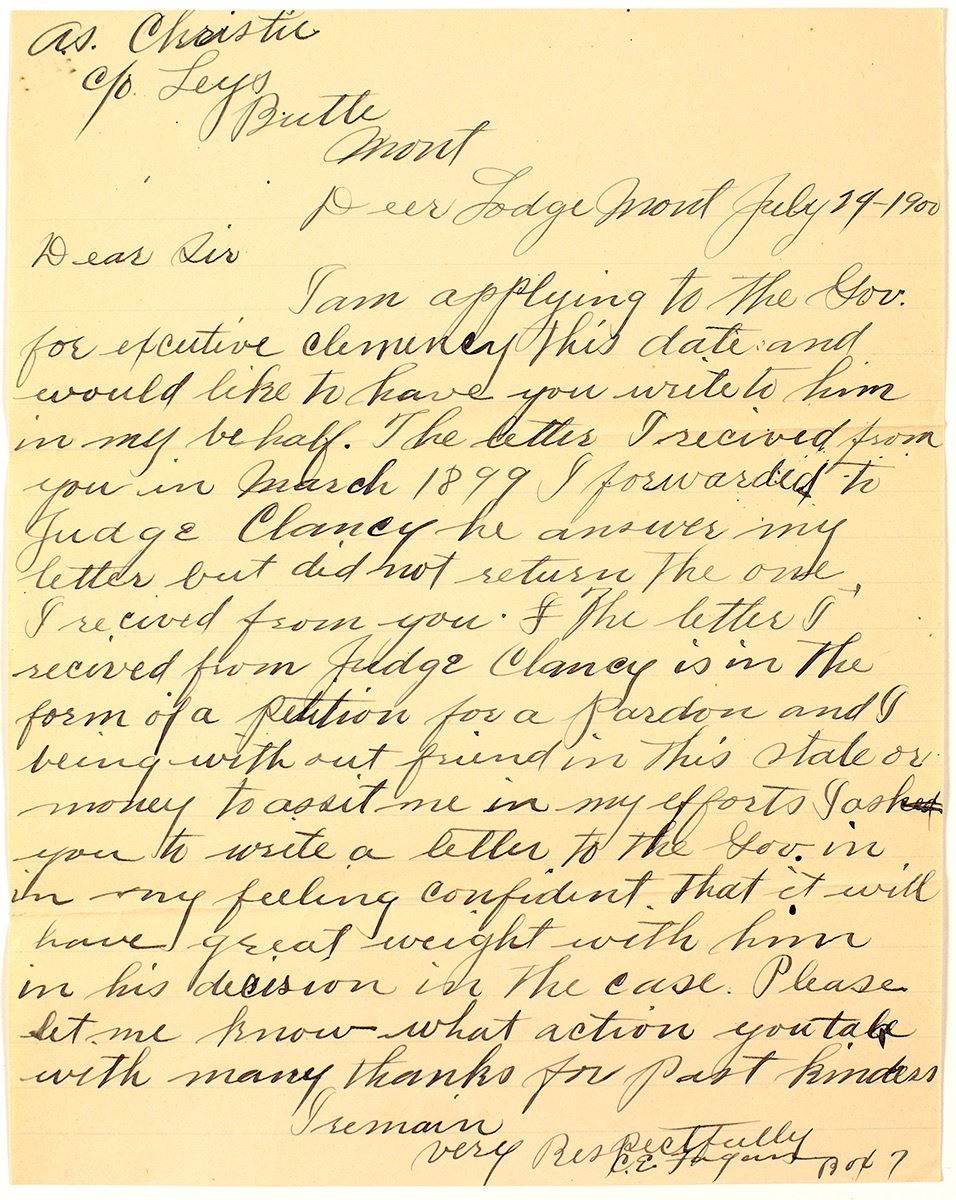 A.S. Christie
c/o. Leys
Butte
Mont
Deer Lodge Mont July 24-1900
Dear Sir
I am applying to the Gov.
for excutive clemency this date and
would like to have you write to him
in my behalf. The letter I recived from
you in March 1899 I forwarded to
Judge Clancy he answer my
letter but did not return the one
I recived from you. & The letter I
recived from Judge Clancy is in the
form of a petition for a Pardon and I
being with out friend in this state or
money to assit me in my efforts I ask
you to write a letter to the Gov. in
in my feeling confident that it will
have great weight with him
in his decision in the case. Please
let me know what action you take
with many thanks for past kindess
I remain
very Respectfully
C.E. Box 7